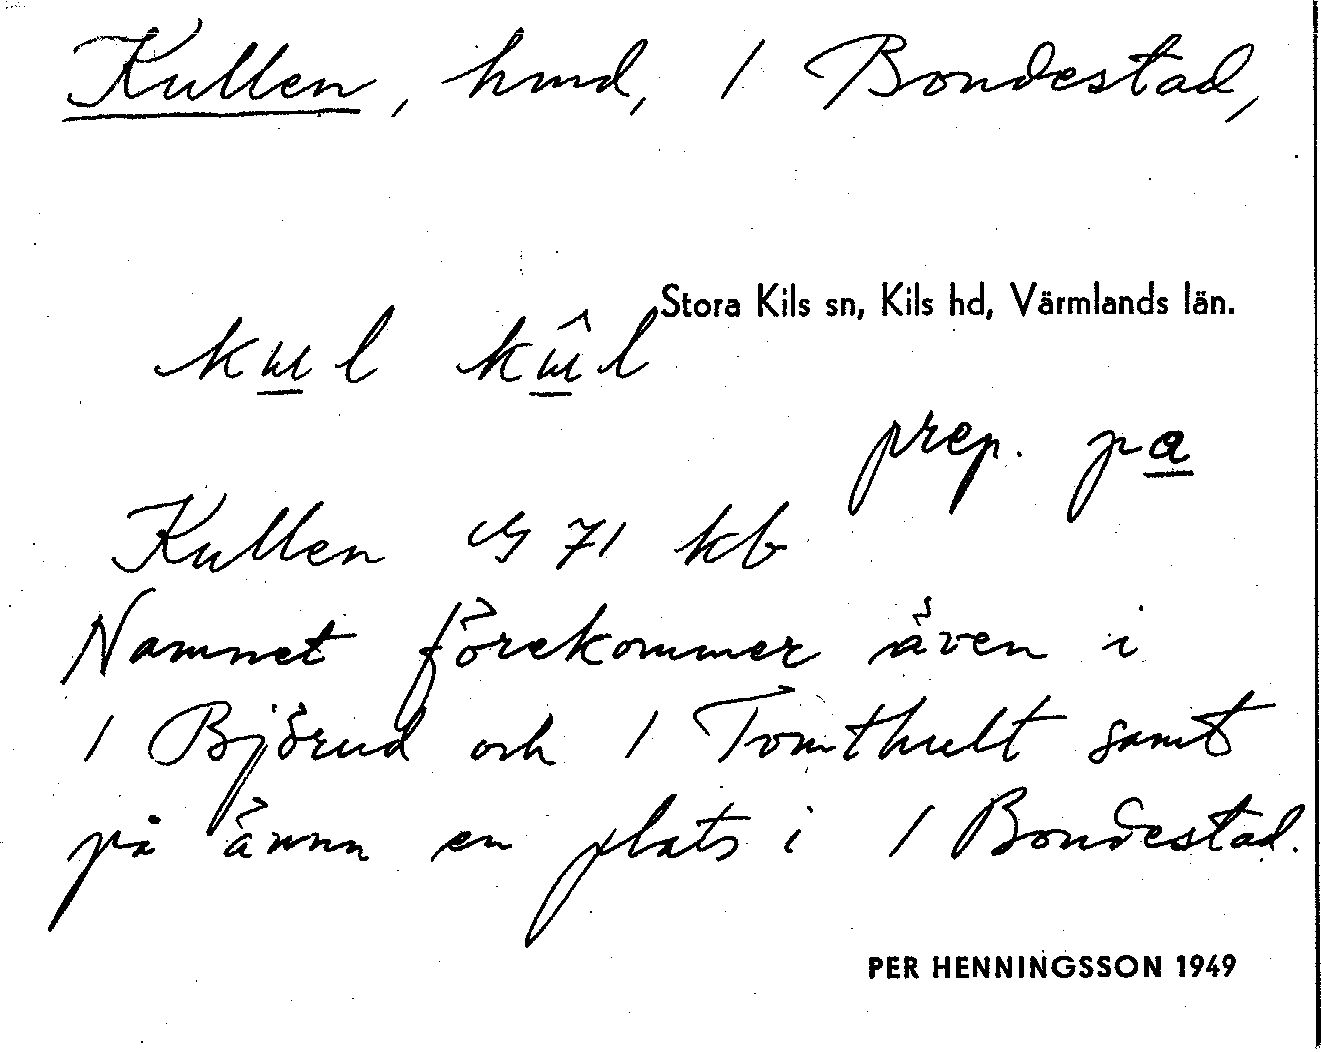 Kullen, hmd, 1 Bondestad,
Stora Kils sn, Kils hd, Värmlands län.
kul kûl
prep. pa
Kullen 71 kb
Namnet förekommer även i
1 Björud och 1 Tomthult samt
på ännu en plats i 1 Bondestad.
PER HENNINGSSON 1949